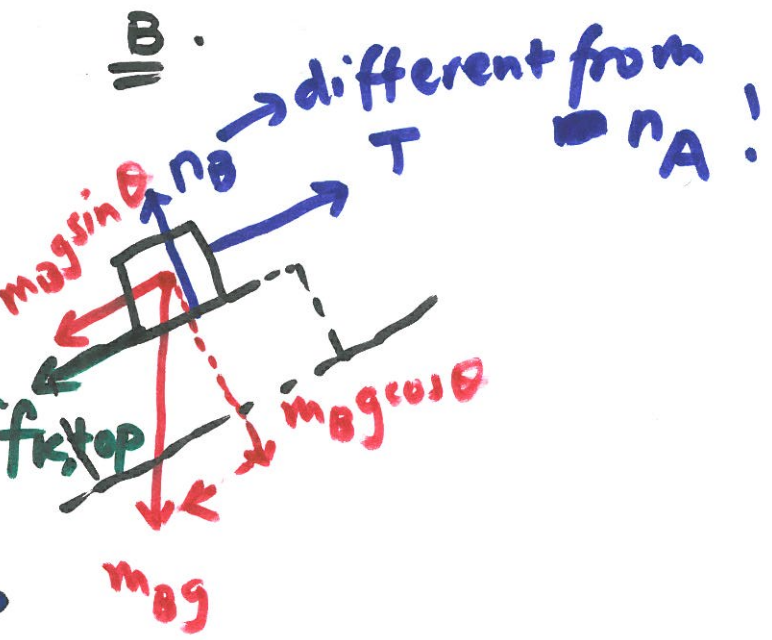 B.
different from
n_A !
n_B
T
m_B g sin θ
m_B g cos θ
f_k,top
m_B g